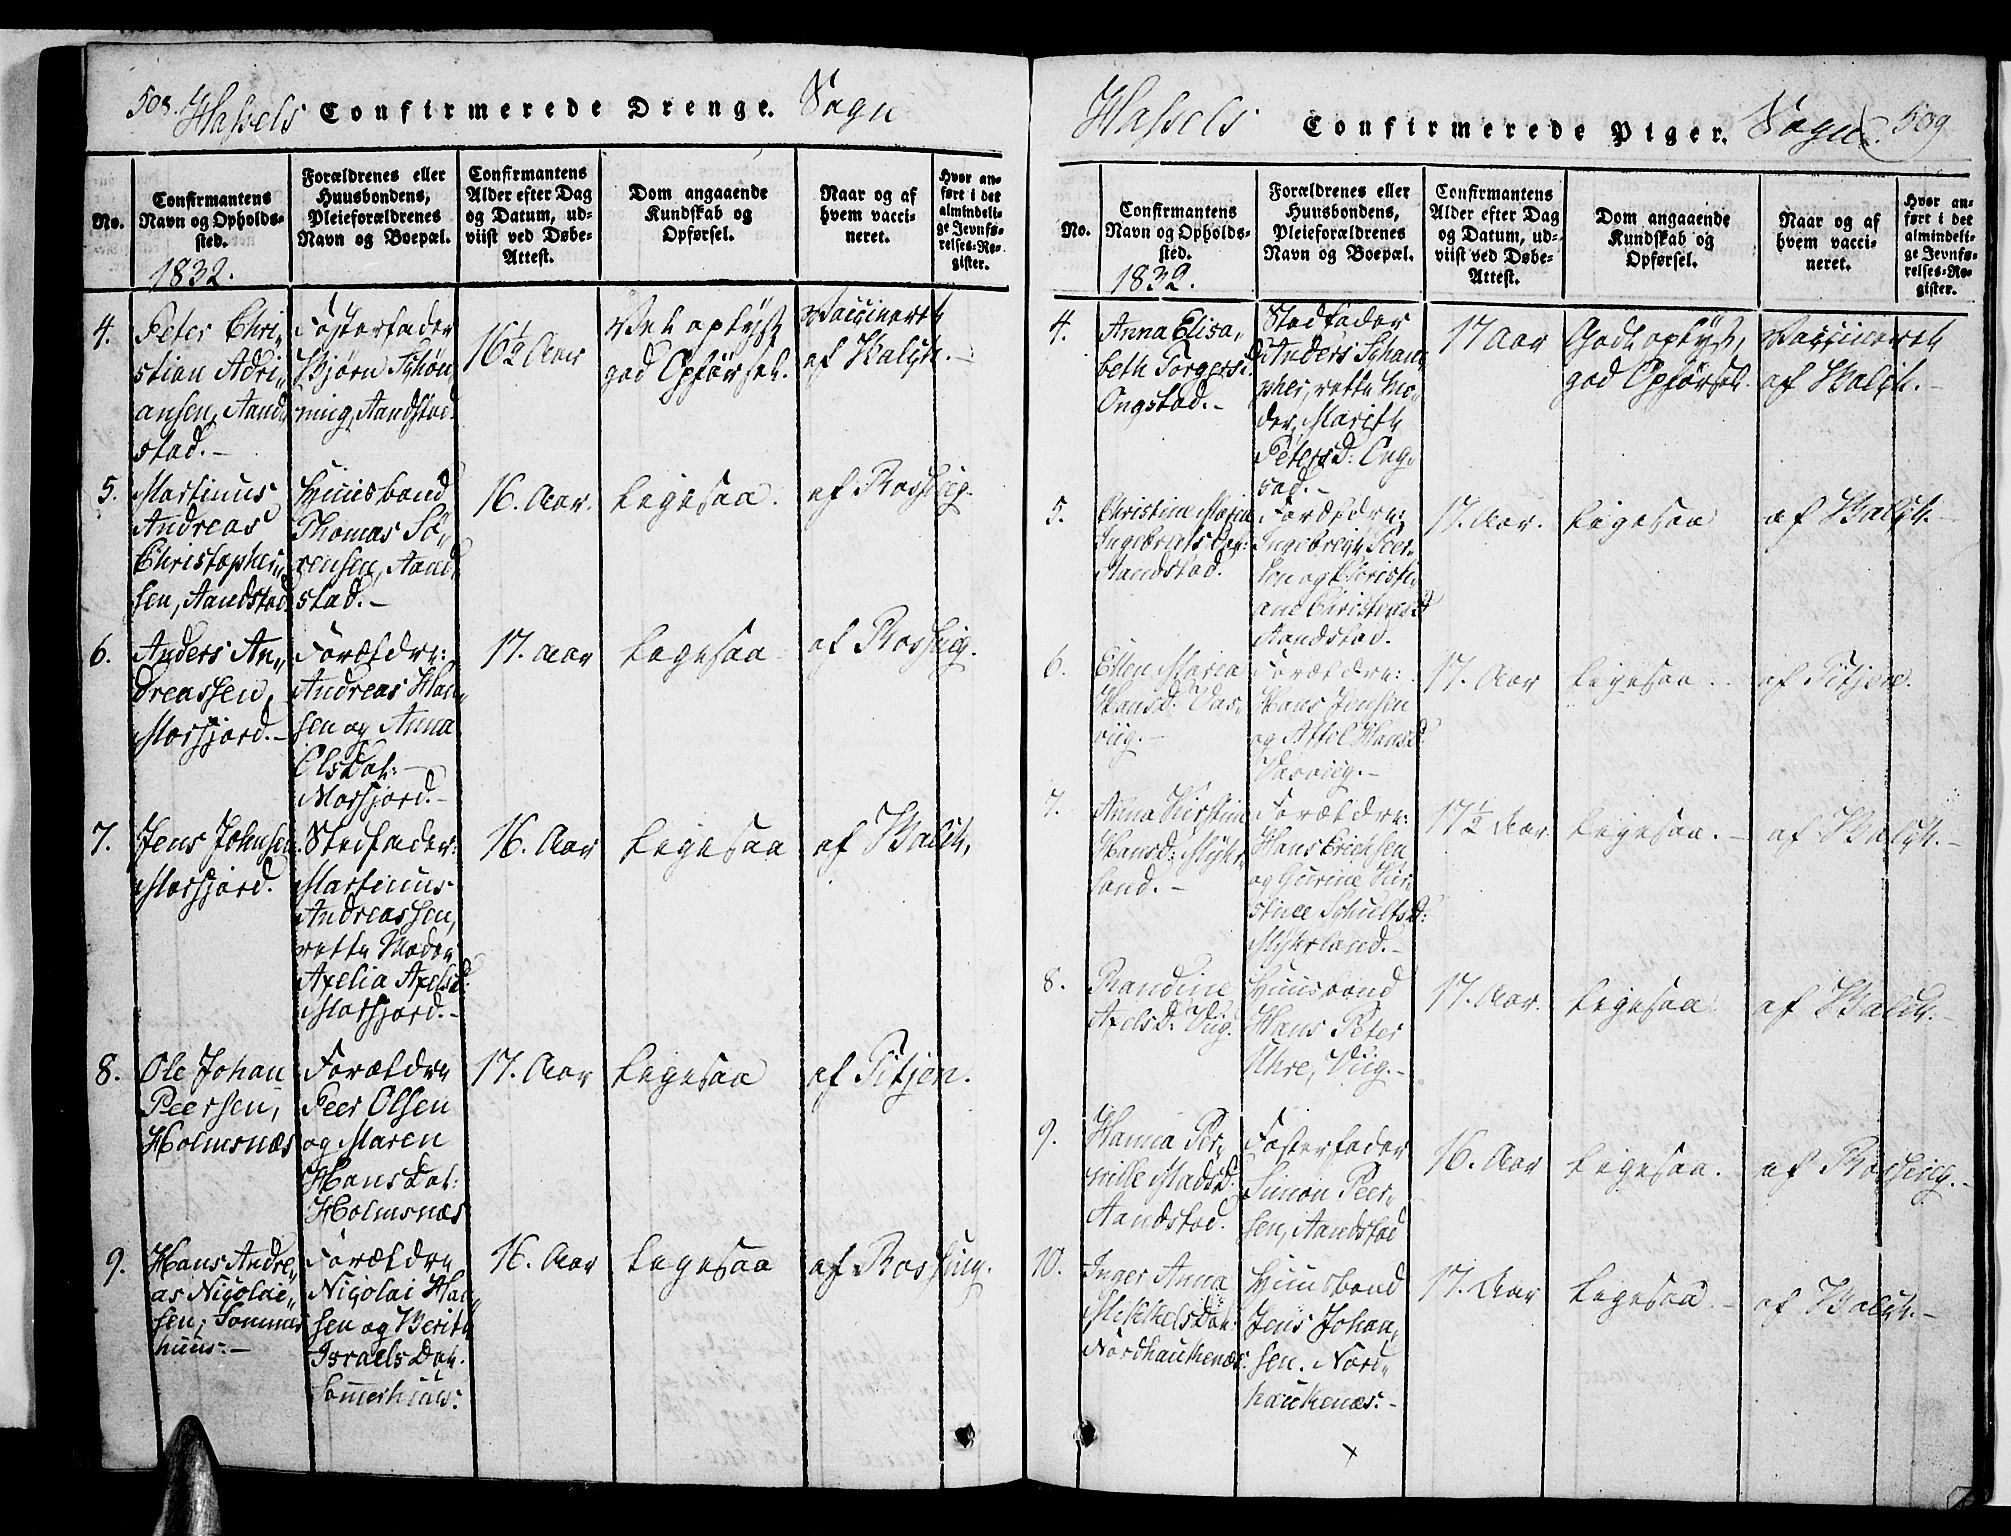 508. Hassels Confirmerede Drenge. Sogn
No.
Confirmantens
Navn og Opholds-
sted.
1832.
Forældrenes eller
Huusbondens,
Pleieforældrenes
Navn og Boepæl.
Confirmantens
Alder efter Dag
og Datum, ud-
viist ved Døbe-
Attest.
Dom angaaende
Kundskab og
Opførsel.
Naar og af
hvem vacci-
neret.
Hvor an-
ført i det
almindeli-
ge Jevnfø-
relses-Re-
gister.
4.
Peter Chri-
stian Adri-
ansen, Aand-
stad.-
Fosterfader
Bjørn Schøn-
ning, Aandstad.
16½ Aar
Vel oplyst,
god Opførsel.
Vaccineret
af Walsh.-
5.
Martinus
Andreas
Christophers-
sen, Aandstad
Huusbond
Thomas Sö-
rensen, Aand-
stad.-
16. Aar.
Ligesaa.
af Rosshug.
6.
Anders An-
dreassen,
Morfjord.-
Forældre:
Andreas Han-
sen og Anna
OlsDat:
Morfjord.-
17. Aar
Ligesaa
af Rosshug.
7.
Jens Johnsen
Morfjord.
Stedfader:
Martinus
Andreassen,
rette Moder
Axelia AxelsD:
Morfjord.-
16. Aar
Ligesaa
af Walsh.
8.
Ole Johan
Peersen,
Holmsnæs
Forældre
Peer Olsen
og Maren
HansDat:
Holmsnæs
17. Aar
Ligesaa
af Titjen.
9.
Hans Andre-
as Nicolai-
sen, Sommer
huus:-
Forældre
Nicolai Han-
sen og Berith
IsraelsDat.
Sommerhuus:
16. Aar
Ligesaa
af Rosshug.
Hassels Confirmerede Piger. Sogn. 509
No.
Confirmantens
Navn og Opholds-
sted.
1832.
Forældrenes eller
Huusbondens,
Pleieforældrenes
Navn og Boepæl.
Confirmantens
Alder efter Dag
og Datum, ud-
viist ved Døbe-
Attest.
Dom angaaende
Kundskab og
Opførsel.
Naar og af
hvem vacci-
neret.
Hvor an-
ført i det
almindeli-
ge Jevnfø-
relses-Re-
gister.
4.
Anna Elisa-
beth TorgersD.
Ongstad.-
Stedfader
Anders
rette Mo-
der, Marith
PetersD: Ong-
stad.-
17 Aar
Godt oplyst,
god Opførsel.
Vaccineret
af Walsh.-
5.
Christine Maria
IngebretsDat:
Aandstad.
Forældre:
Ingebregt Peer-
sen og Christi-
ane ChristensD
Aandstad.
17. Aar.
Ligesaa
af Walsh.-
6.
Ellen Maria
HansD:
viig.-
Forældre:
Hans Jensen
og HansD:
17. Aar
Ligesaa
af Titjen.
7.
Anna Kirstine
HansD: Myhr-
land.-
Forældre:
Hans Erichsen
og Gurine Kir-
stine SchultsD:
Myhrland.-
17½ Aar.
Ligesaa.-
af Walsh.-
8.
Randine
AxelsD: Viig.
Huusbond
Hans Peter
Uhre, Viig.-
17. Aar.
Ligesaa
af Walsh.-
9.
Hanna Per-
nille MadsD:
Aandstad.
Fosterfader
Simon Peer-
sen, Aandstad
16. Aar
Ligesaa.
af Rosshug.-
10.
Inger Anna
Nordhaukenæs:
Huusbond
Jens Johan-
sen. Nord-
haukenæs:-
17. Aar
Ligesaa.-
af Walsh.-
x